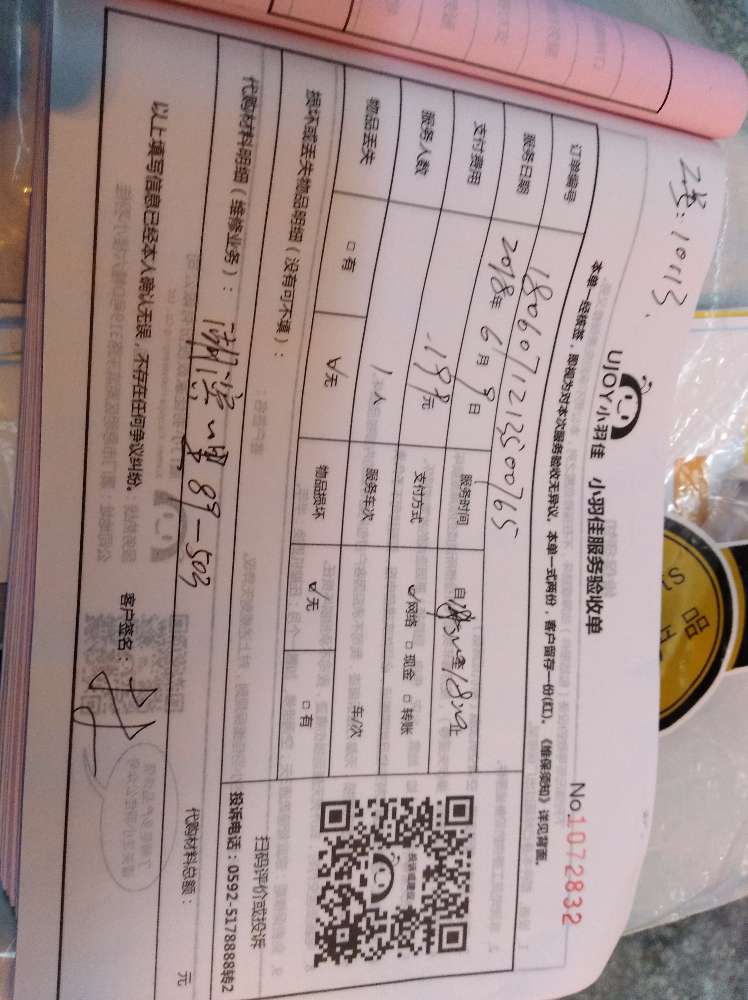 UJOY小羽佳 小羽佳服务验收单
No.1072832
本单一经核签，即视为对本次服务验收无异议。本单一式两份，客户留存一份(红)。《维保须知》详见背面。
订单编号 1806071212500765
服务日期 2018年6月9日 服务时间 自
支付费用 198元 支付方式 ☑网络 □现金 □转账
服务人数 1人 服务车次 车/次
物品丢失 □有 ☑无 物品损坏 ☑无 □有
损坏或丢失物品明细（没有可不填）：
代购材料明细（维修业务）：
代购材料总额： 元
89-503
以上填写信息已经本人确认无误，不存在任何争议纠纷。 客户签名：
扫码评价或投诉
投诉电话：0592-5178888转2
品